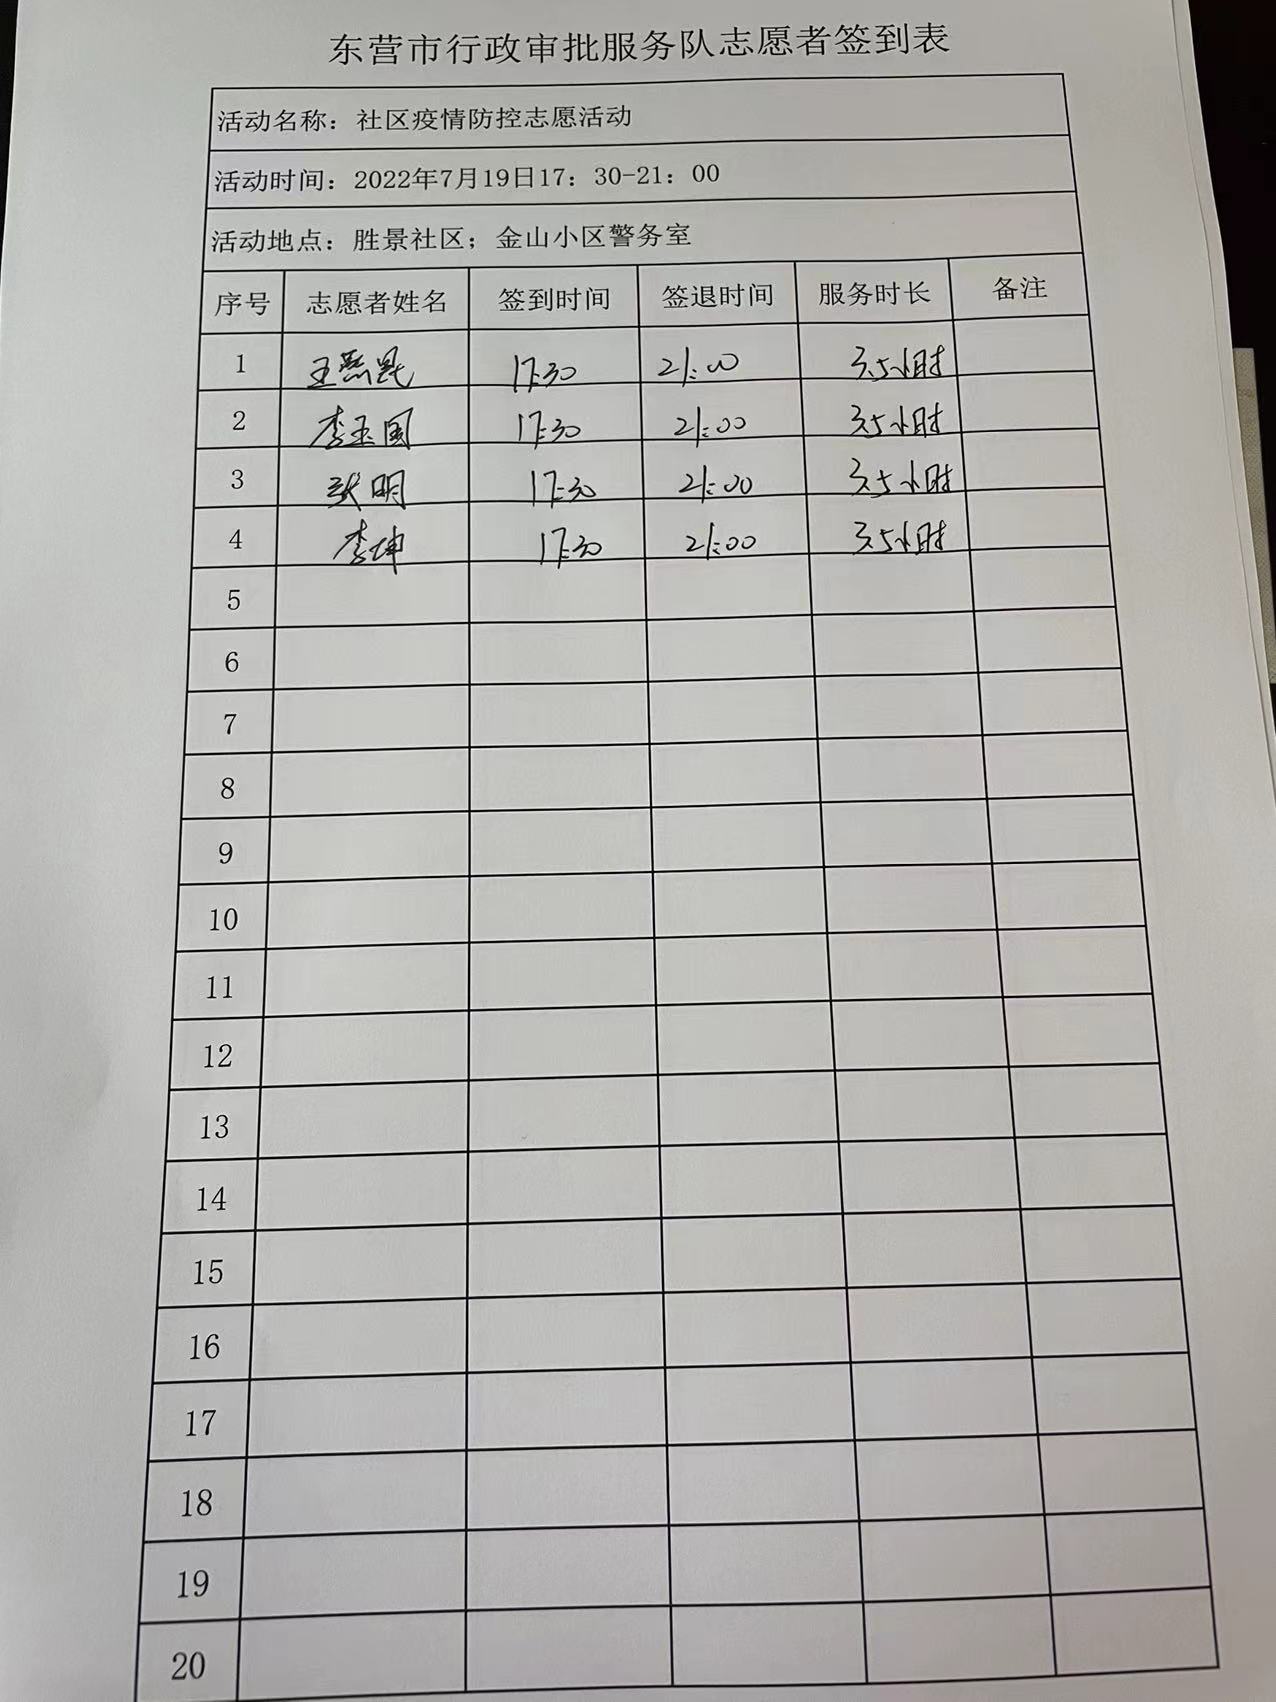 东营市行政审批服务队志愿者签到表
活动名称：社区疫情防控志愿活动
活动时间：2022年7月19日17：30-21：00
活动地点：胜景社区；金山小区警务室
序号 志愿者姓名 签到时间 签退时间 服务时长 备注
1 王燕昆 17:30 21:00 3.5小时
2 李玉国 17:30 21:00 3.5小时
3 张明 17:30 21:00 3.5小时
4 李坤 17:30 21:00 3.5小时
5
6
7
8
9
10
11
12
13
14
15
16
17
18
19
20